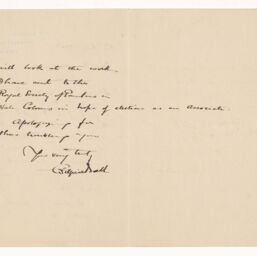 will look at the work
I have sent to the
Royal Society of Painters in
Water Colours in hope of election as an Associate.
Apologizing for
thus troubling you
Yours very truly